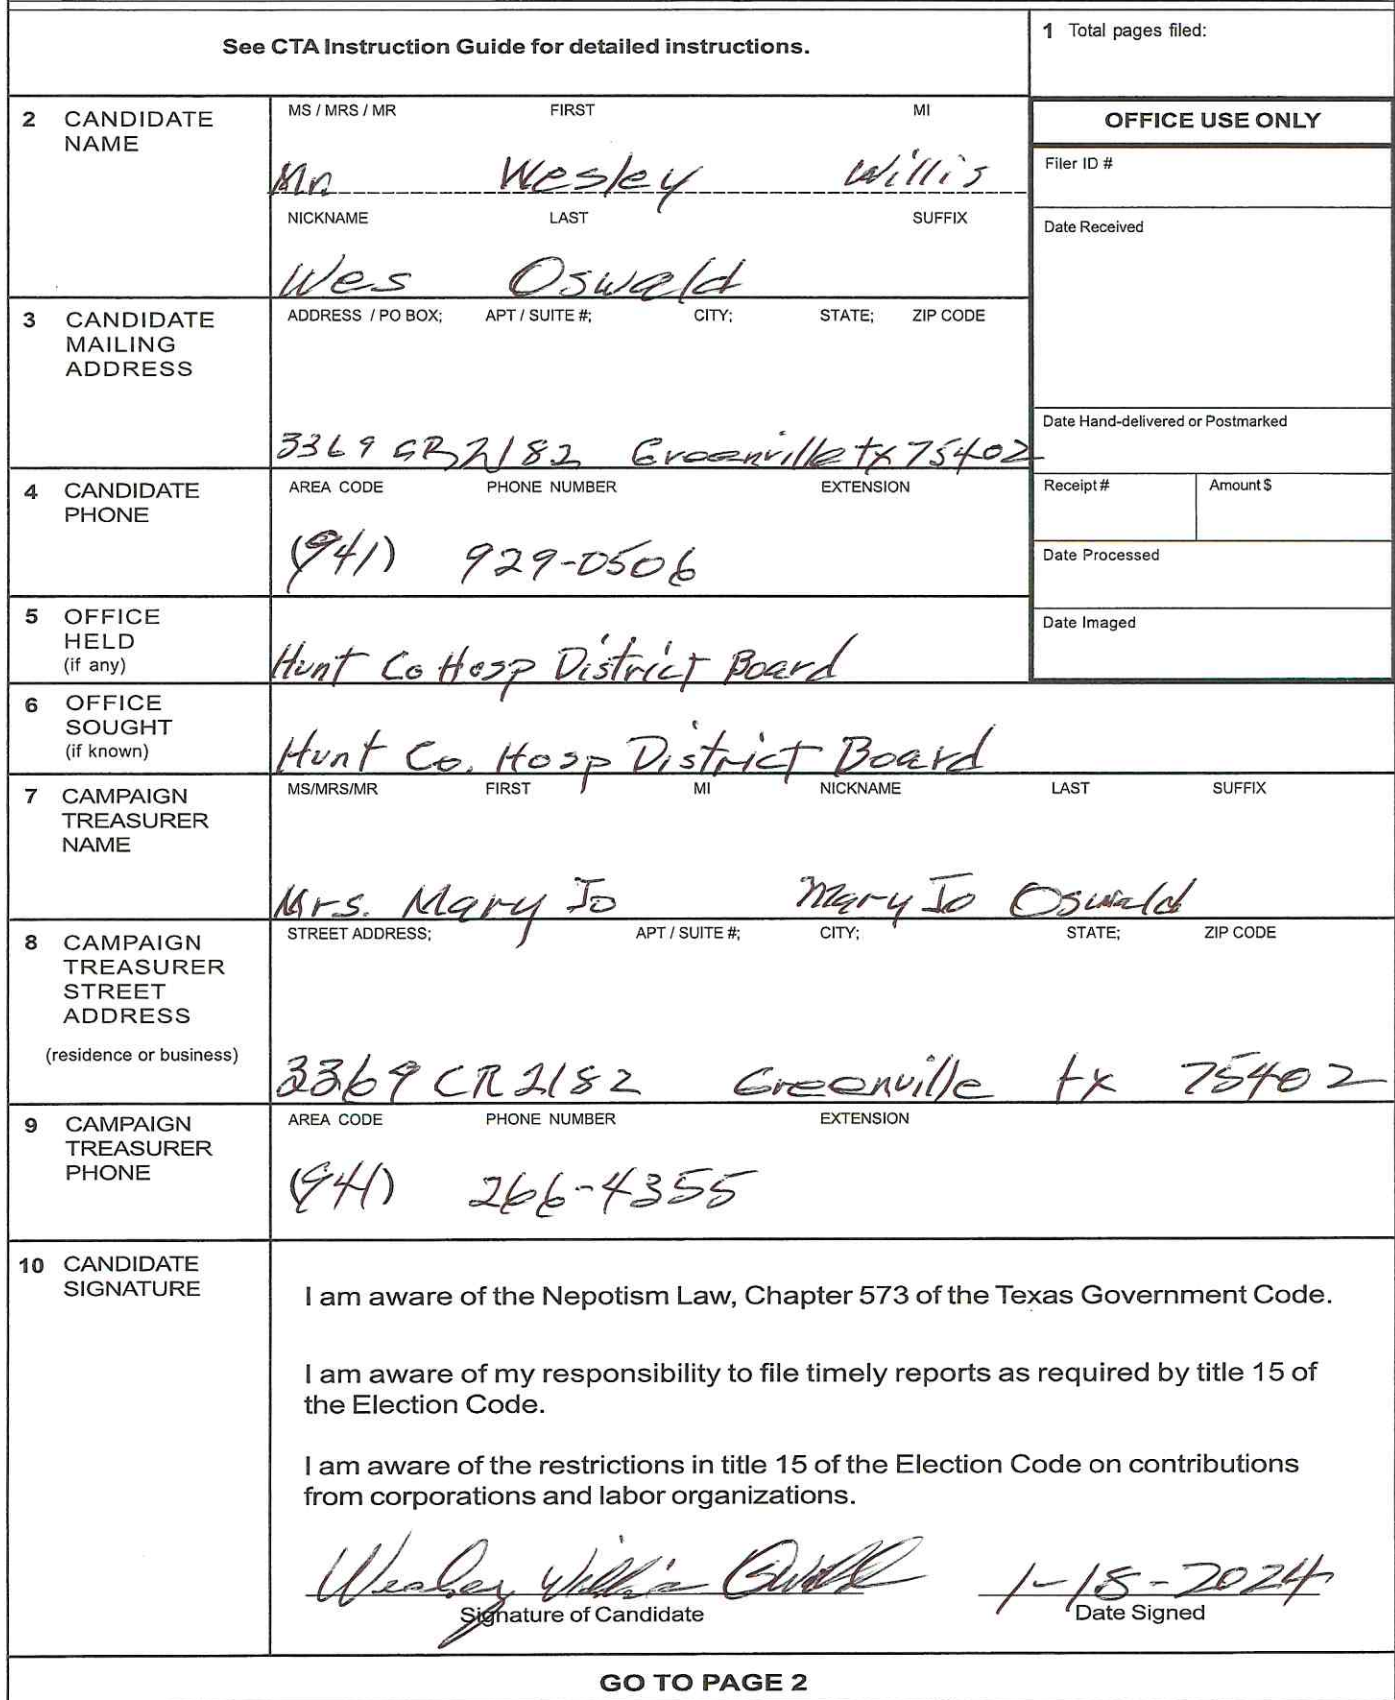 See CTA Instruction Guide for detailed instructions.
1 Total pages filed:
2 CANDIDATE NAME
MS / MRS / MR FIRST MI
Mr Wesley Willis
NICKNAME LAST SUFFIX
Wes Oswald
OFFICE USE ONLY
Filer ID #
Date Received
3 CANDIDATE MAILING ADDRESS
ADDRESS / PO BOX; APT / SUITE #; CITY; STATE; ZIP CODE
3369 CR 2182 Greenville tx 75402
Date Hand-delivered or Postmarked
4 CANDIDATE PHONE
AREA CODE PHONE NUMBER EXTENSION
(941) 929-0506
Receipt # Amount $
Date Processed
Date Imaged
5 OFFICE HELD (if any)
Hunt Co Hosp District Board
6 OFFICE SOUGHT (if known)
Hunt Co. Hosp District Board
7 CAMPAIGN TREASURER NAME
MS/MRS/MR FIRST MI NICKNAME LAST SUFFIX
Mrs. Mary Jo Mary Jo Oswald
8 CAMPAIGN TREASURER STREET ADDRESS
(residence or business)
STREET ADDRESS; APT / SUITE #; CITY; STATE; ZIP CODE
3369 CR 2182 Greenville tx 75402
9 CAMPAIGN TREASURER PHONE
AREA CODE PHONE NUMBER EXTENSION
(941) 266-4355
10 CANDIDATE SIGNATURE
I am aware of the Nepotism Law, Chapter 573 of the Texas Government Code.
I am aware of my responsibility to file timely reports as required by title 15 of
the Election Code.
I am aware of the restrictions in title 15 of the Election Code on contributions
from corporations and labor organizations.
Wesley Willis Oswald 1-18-2024
Signature of Candidate Date Signed
GO TO PAGE 2